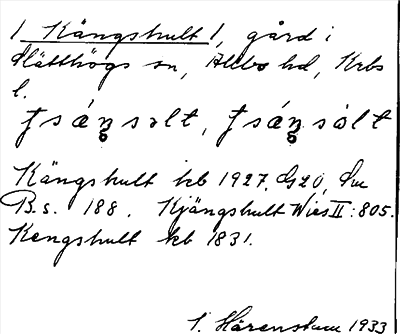 1 Kängshult 1, gård i
Slätthögs sn, Allbo hd, Krbs
l.
ʃsáŋsəlt, ʃsáŋsòlt
Kängshult kb 1927, G20,
B.s. 188. Kjängshult Wies II: 805.
Kengshult kb 1831.
1933